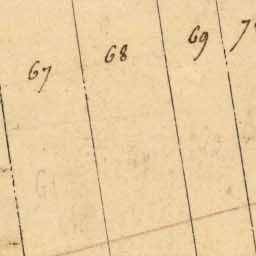 67
68
69